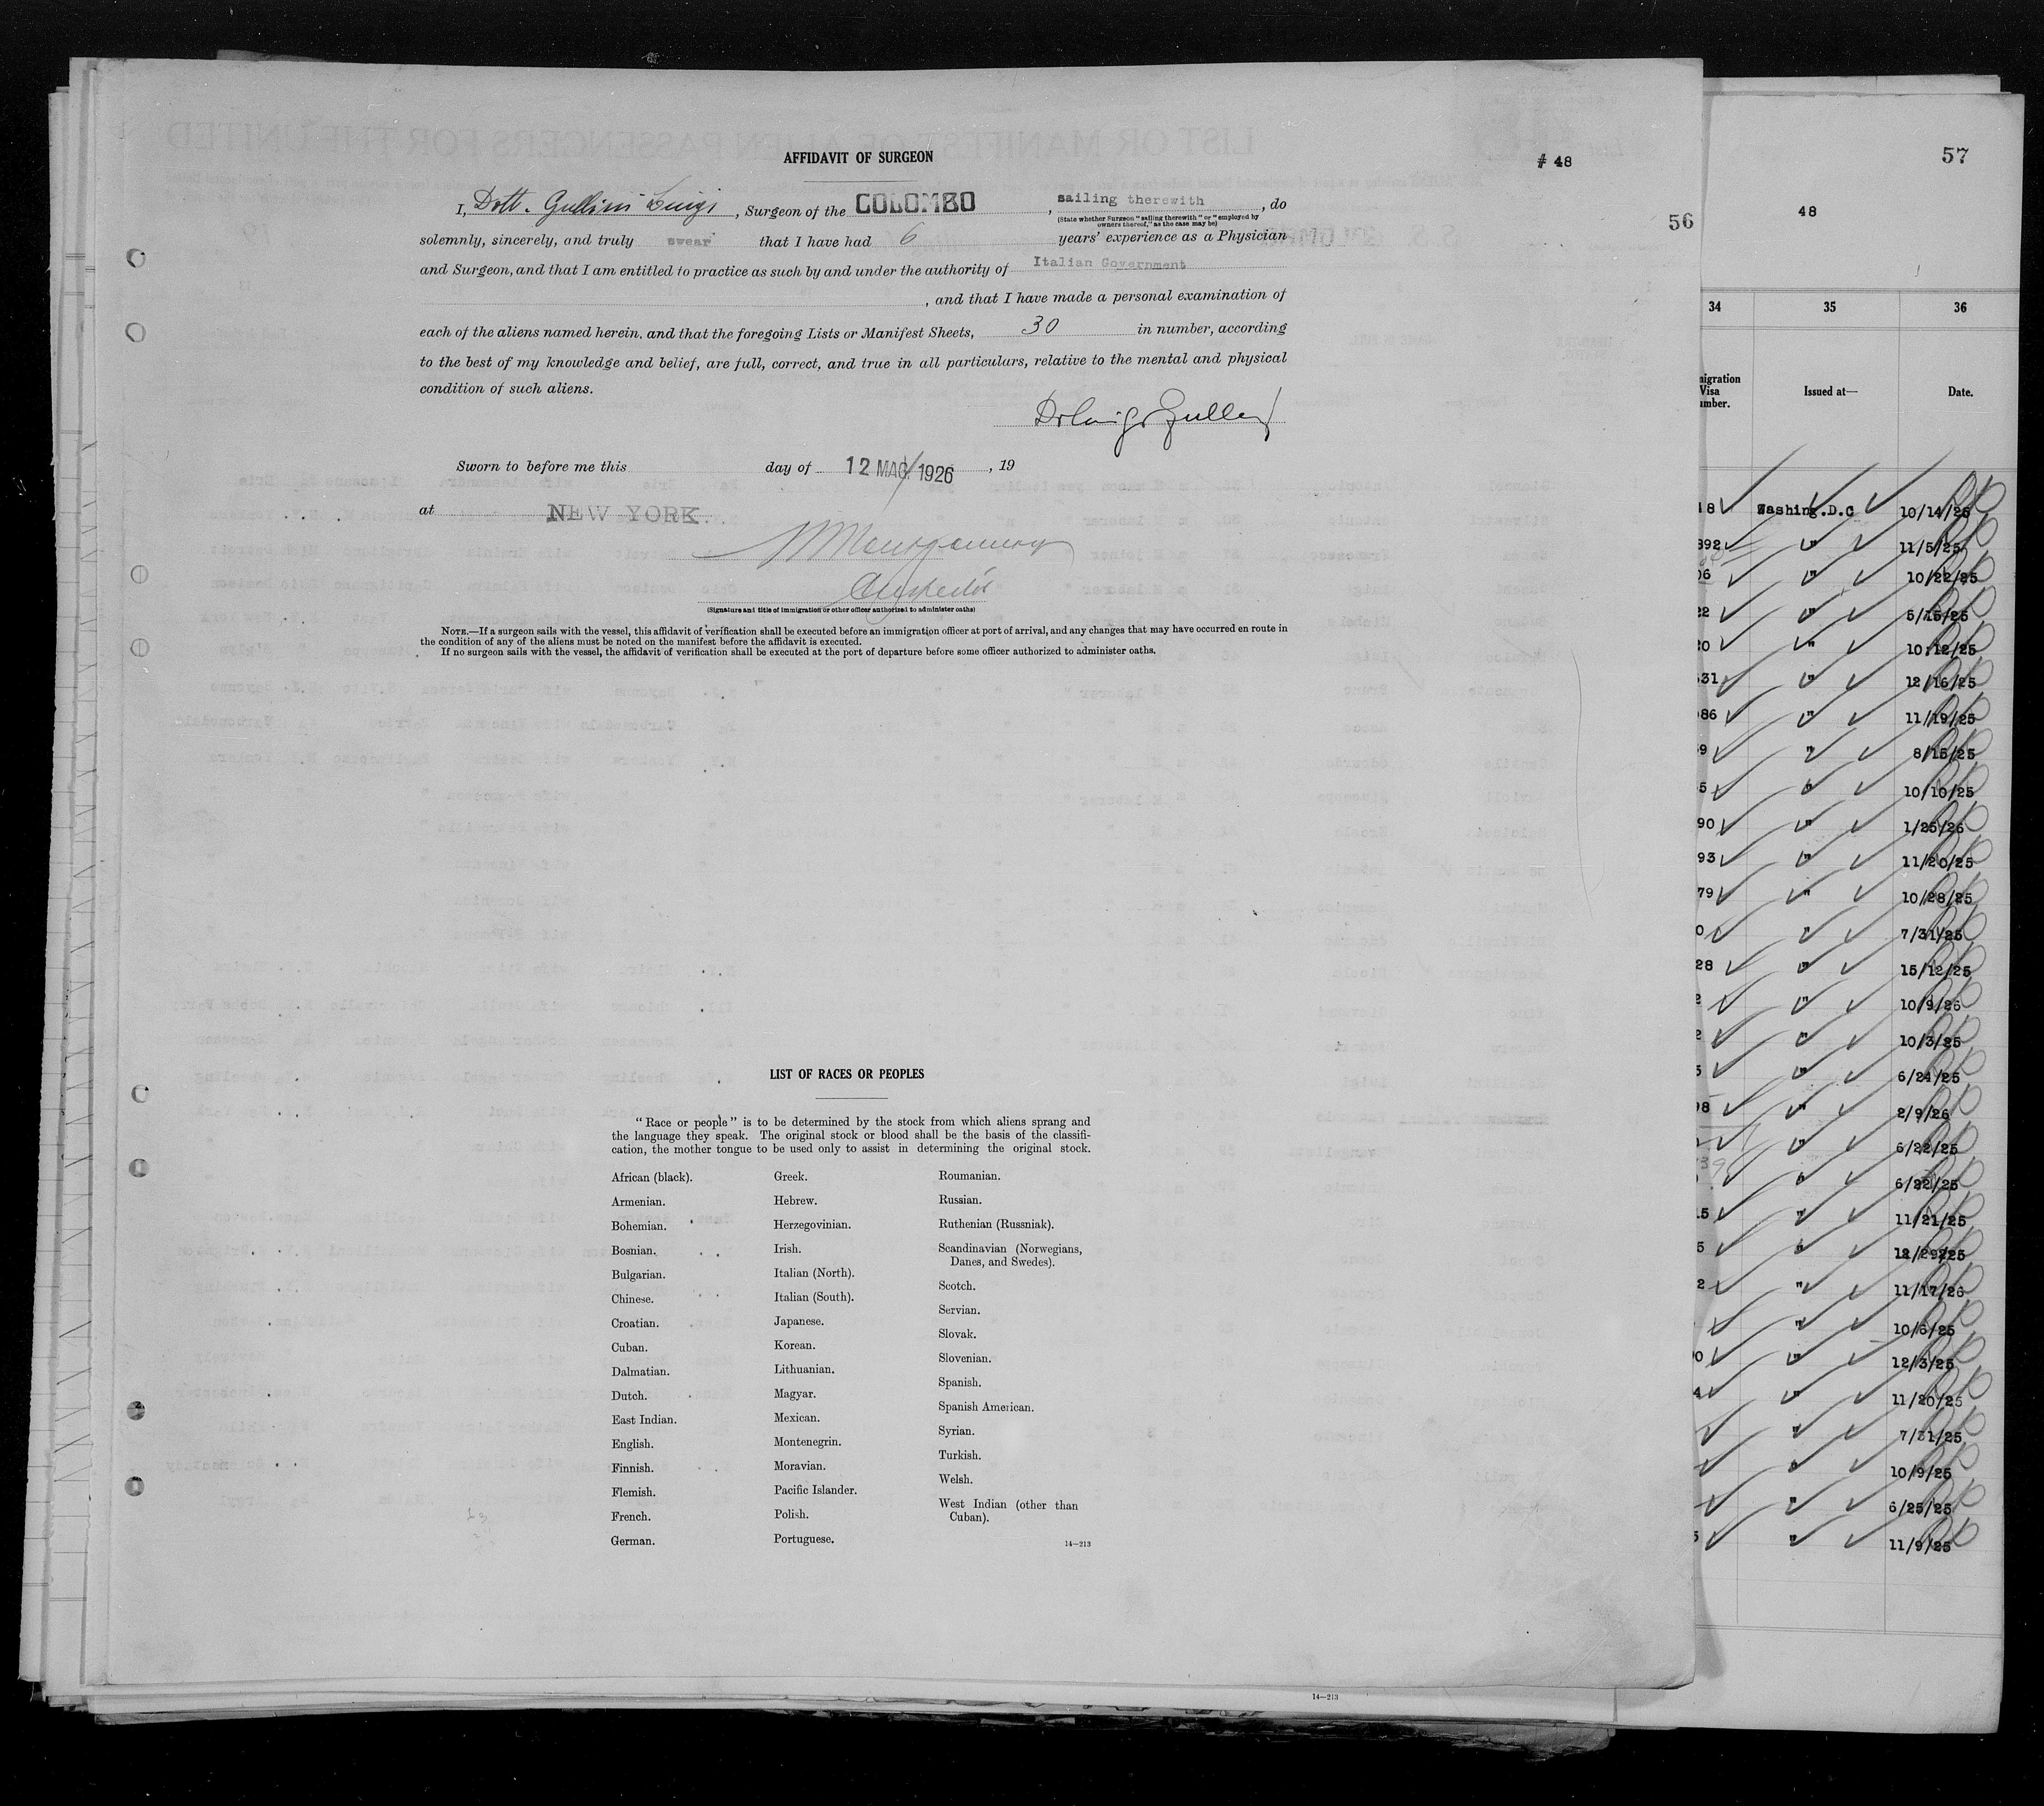 AFFIDAVIT OF SURGEON
# 48
I, Dott. Gullini Luigi, Surgeon of the COLOMBO, sailing therewith, do
(State whether Surgeon "sailing therewith" or "employed by
owners thereof," as the case may be)
solemnly, sincerely, and truly swear that I have had 6 years' experience as a Physician
and Surgeon, and that I am entitled to practice as such by and under the authority of Italian Government
, and that I have made a personal examination of
each of the aliens named herein, and that the foregoing Lists or Manifest Sheets, 30 in number, according
to the best of my knowledge and belief, are full, correct, and true in all particulars, relative to the mental and physical
condition of such aliens.
Sworn to before me this day of 12 MAG. 1926, 19
at NEW YORK.
(Signature and title of immigration or other officer authorized to administer oaths)
NOTE.—If a surgeon sails with the vessel, this affidavit of verification shall be executed before an immigration officer at port of arrival, and any changes that may have occurred en route in
the condition of any of the aliens must be noted on the manifest before the affidavit is executed.
If no surgeon sails with the vessel, the affidavit of verification shall be executed at the port of departure before some officer authorized to administer oaths.
LIST OF RACES OR PEOPLES
"Race or people" is to be determined by the stock from which aliens sprang and
the language they speak. The original stock or blood shall be the basis of the classifi-
cation, the mother tongue to be used only to assist in determining the original stock.
African (black).
Armenian.
Bohemian.
Bosnian.
Bulgarian.
Chinese.
Croatian.
Cuban.
Dalmatian.
Dutch.
East Indian.
English.
Finnish.
Flemish.
French.
German.
Greek.
Hebrew.
Herzegovinian.
Irish.
Italian (North).
Italian (South).
Japanese.
Korean.
Lithuanian.
Magyar.
Mexican.
Montenegrin.
Moravian.
Pacific Islander.
Polish.
Portuguese.
Roumanian.
Russian.
Ruthenian (Russniak).
Scandinavian (Norwegians,
Danes, and Swedes).
Scotch.
Servian.
Slovak.
Slovenian.
Spanish.
Spanish American.
Syrian.
Turkish.
Welsh.
West Indian (other than
Cuban).
14—213
14—213
56
57
48
34 35 36
Issued at— Date.
Washing.D.C 10/14/25
" 11/5/25
" 10/22/25
" 5/15/25
" 10.12/25
" 12/16/25
" 11/19/25
" 8/15/25
" 10/10/25
" 1/25/26
" 11/20/25
" 10/28/25
" 7/31/25
" 15/12/25
" 10/9/26
" 10/3/25
" 6/24/25
" 2/9/26
" 6/22/25
" 6/22/25
" 11/21/25
" 12/29/25
" 11/17/26
" 10/6/25
" 12/3/25
" 11/20/25
" 7/31/25
" 10/9/25
" 6/25/25
" 11/9/25